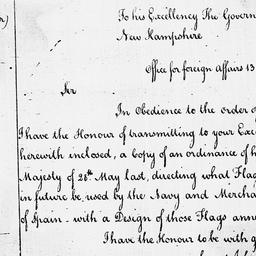 r)
To his Excellency The Govern
New Hampshire
Office for foreign Affairs 13
Sir
In Obedience to the order of
I have the Honour of transmitting to your Exce
herewith inclosed, a copy of an ordinance of h
Majesty of 28th May last, directing what Flag
in future be, used by the Navy and Mercha
of Spain - with a Design of those Flags anne
I have the Honour to be with g